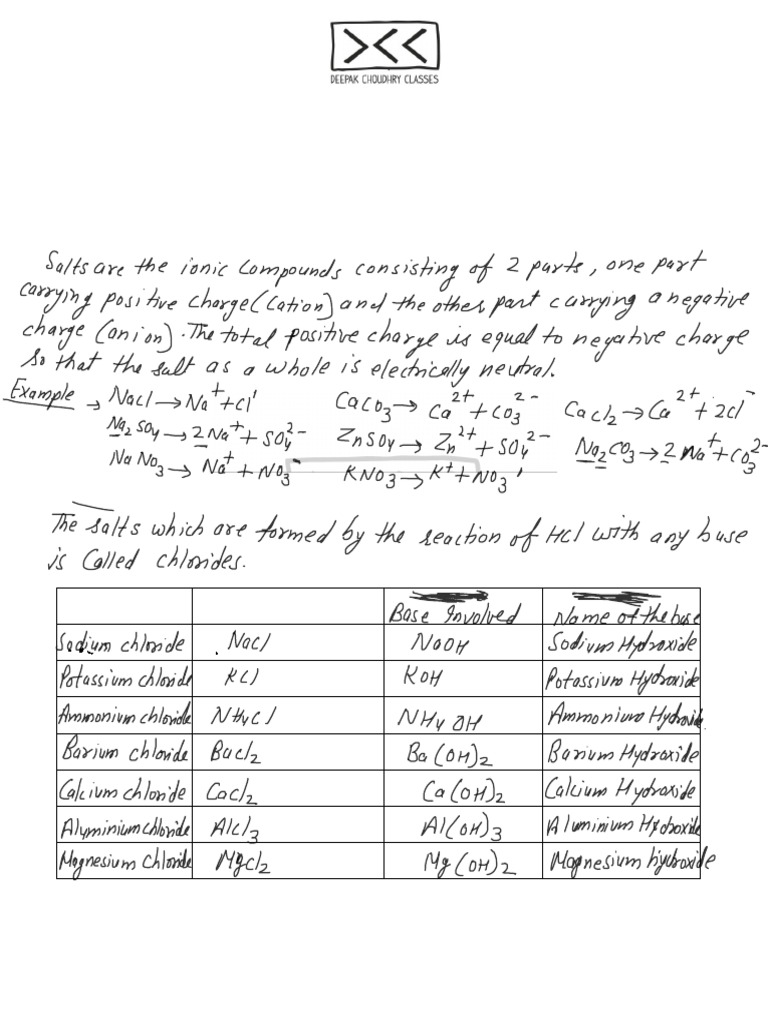 DEEPAK CHOUDHRY CLASSES
Salts are the ionic compounds consisting of 2 parts, one part
carrying positive charge (Cation) and the other part carrying a negative
charge (anion). The total positive charge is equal to negative charge
so that the salt as a whole is electrically neutral.
Example → NaCl → Na⁺ + Cl⁻ CaCO₃ → Ca²⁺ + CO₃²⁻ CaCl₂ → Ca²⁺ + 2Cl⁻
Na₂SO₄ → 2Na⁺ + SO₄²⁻ ZnSO₄ → Zn²⁺ + SO₄²⁻ Na₂CO₃ → 2Na⁺ + CO₃²⁻
NaNO₃ → Na⁺ + NO₃⁻ KNO₃ → K⁺ + NO₃⁻
The salts which are formed by the reaction of HCl with any base
is Called chlorides.
Base Involved Name of the base
Sodium chloride NaCl NaOH Sodium Hydroxide
Potassium chloride KCl KOH Potassium Hydroxide
Ammonium chloride NH₄Cl NH₄OH Ammonium Hydroxide
Barium chloride BaCl₂ Ba(OH)₂ Barium Hydroxide
Calcium chloride CaCl₂ Ca(OH)₂ Calcium Hydroxide
Aluminium chloride AlCl₃ Al(OH)₃ Aluminium Hydroxide
Magnesium chloride MgCl₂ Mg(OH)₂ Magnesium hydroxide